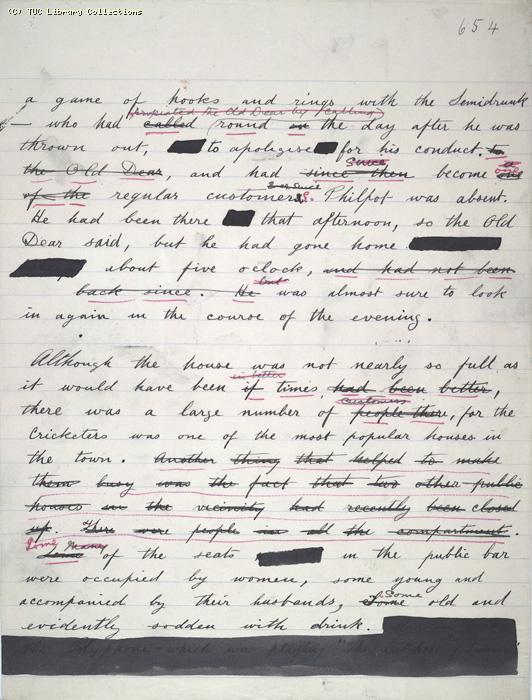 (C) TUC Library Collections
654
a game of hooks and rings with the Semidrunk
propitiated the Old Dear by calling
— who had called round on the day after he was
thrown out, to apologise for his conduct. to
Since a
the Old Dear, and had since then become one
ever since
of the regular customers. Philpot was absent.
He had been there that afternoon, so the Old
Dear said, but he had gone home
about five oclock, and had not been
but
back since. He was almost sure to look
in again in the course of the evening.
Although the house was not nearly so full as
in better
it would have been if times had been better,
customers
there was a large number of people there, for the
Cricketers was one of the most popular houses in
the town. Another thing that helped to make
them busy was the fact that two other public
houses in the vicinity had recently been closed
up. There were people in all the compartments.
Some Many
Some of the seats in the public bar
were occupied by women, some young and
Some
accompanied by their husbands, Some old and
evidently sodden with drink.
The Polyphone – which was playing "the